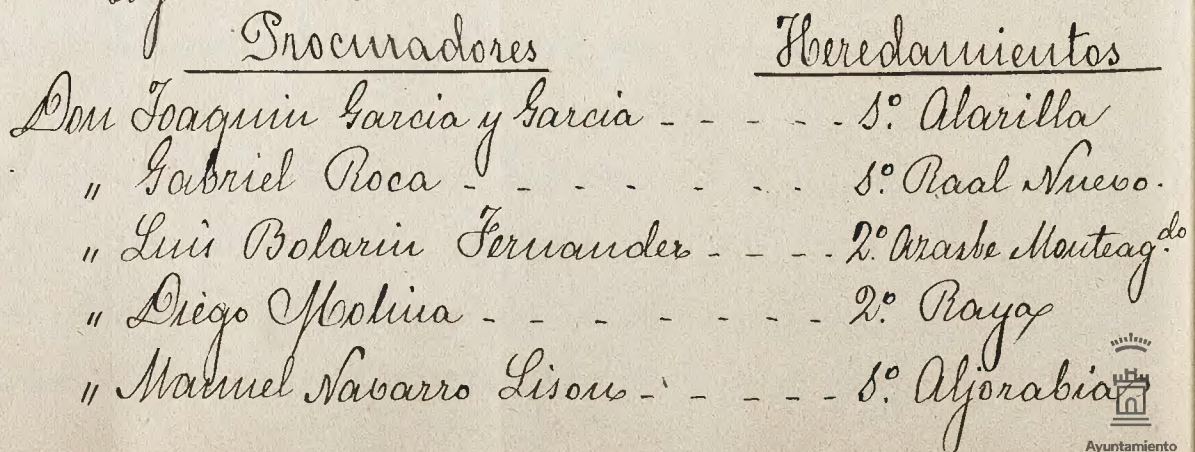 Procuradores Heredamientos
Don Joaquin Garcia y Garcia - - - - - 1º. Alarilla
" Gabriel Roca - - - - - - - - 1º. Raal Nuevo.
" Luis Bolarin Fernandez - - - - 2º. Azarbe Monteag.do
" Diego Molina - - - - - - - - 2º. Raya
" Manuel Navarro Lison - - - - - 1º. Aljorabia
Ayuntamiento